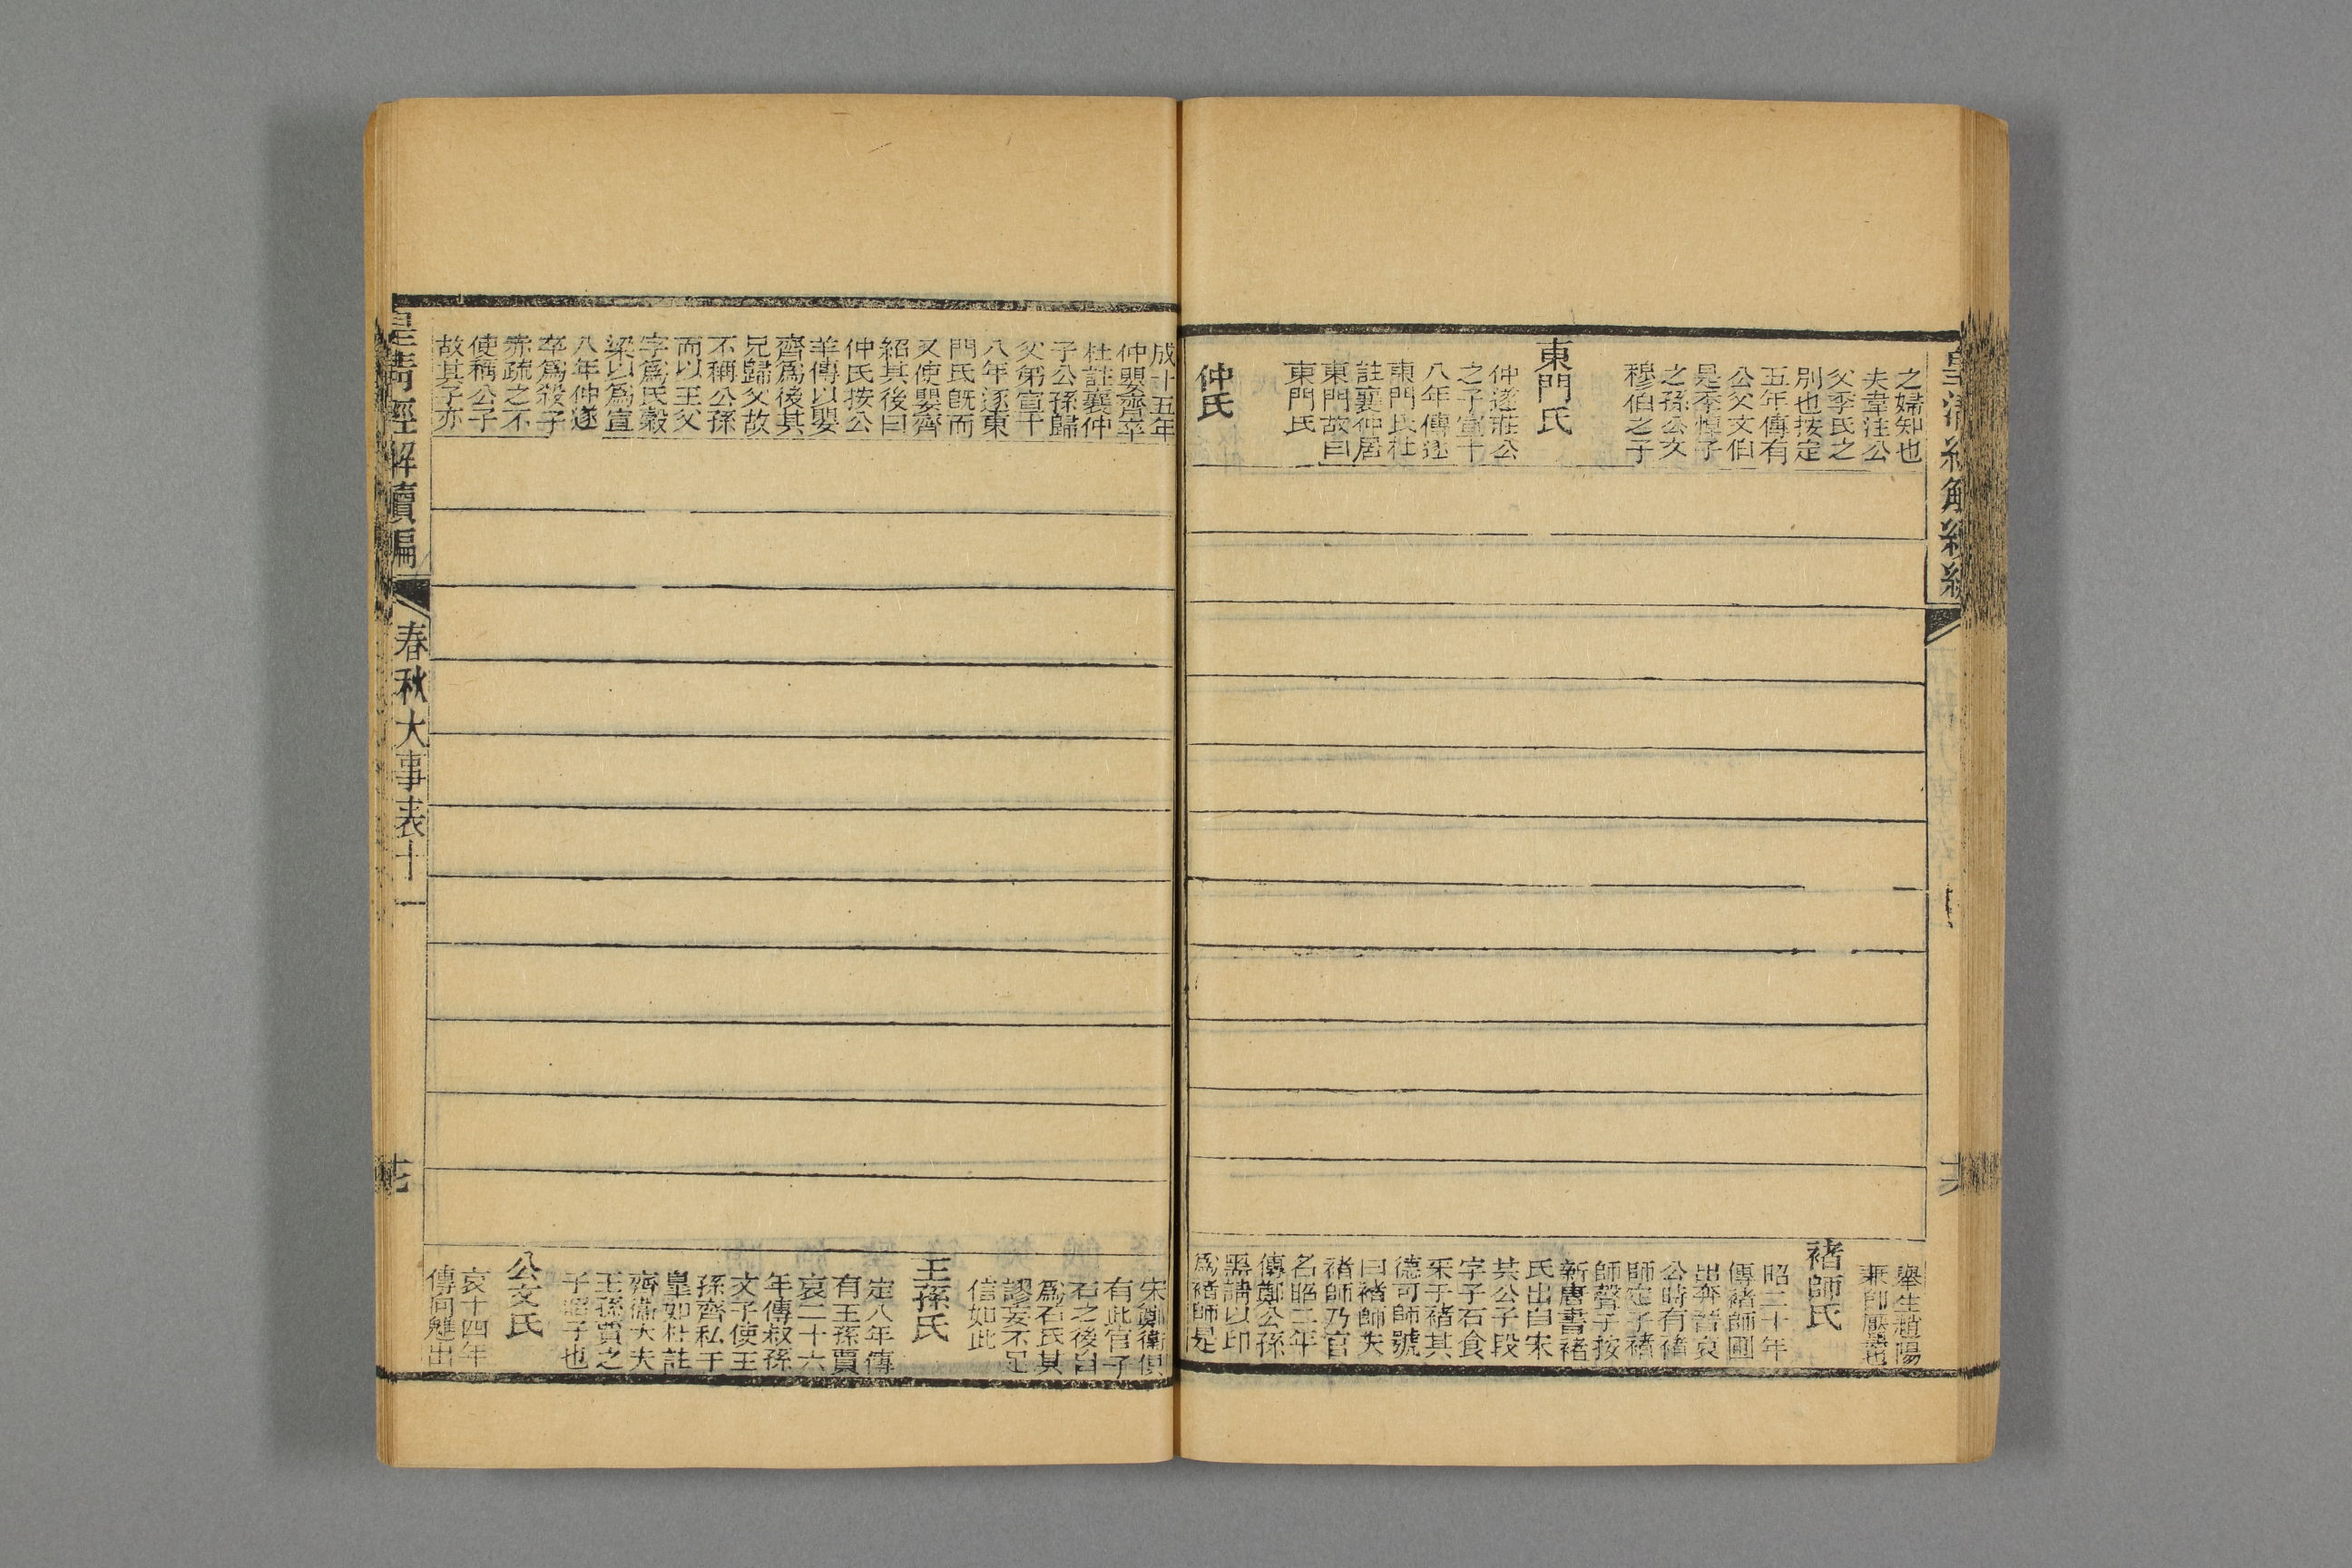 之婦知也
夫韋注公
父季氏之
別也按定
五年傳有
公父文伯
是季悼子
之孫公文
穆伯之子
東門氏
仲遂莊公
之子宣十
八年傳逐
東門氏杜
註襄仲居
東門故曰
東門氏
仲氏
舉生趙陽
兼即黶也
褚師氏
昭二十年
傳褚師圃
出奔晉哀
公時有褚
師定子褚
師聲子按
新唐書褚
氏出自宋
共公子段
字子石食
采于褚其
德可師號
曰褚師夫
褚師乃官
名昭二年
傳鄭公孫
黑請以印
為褚師是
成十五年
仲嬰齊卒
杜註襄仲
子公孫歸
父弟宣十
八年逐東
門氏旣而
又使嬰齊
紹其後曰
仲氏按公
羊傳以嬰
齊爲後其
兄歸父故
不稱公孫
而以王父
字爲氏穀
梁以爲宣
八年仲遂
卒爲殺子
赤疏之不
使稱公子
故其子亦
宋鄭衞俱
有此官子
石之後自
爲石氏其
謬妄不足
信如此
王孫氏
定八年傳
有王孫賈
哀二十六
年傳叔孫
文子使王
孫齊私于
皐如杜註
齊衞大夫
王孫賈之
子昭子也
公文氏
哀十四年
傳向魋出
皇清經解續編
春秋大事表十一